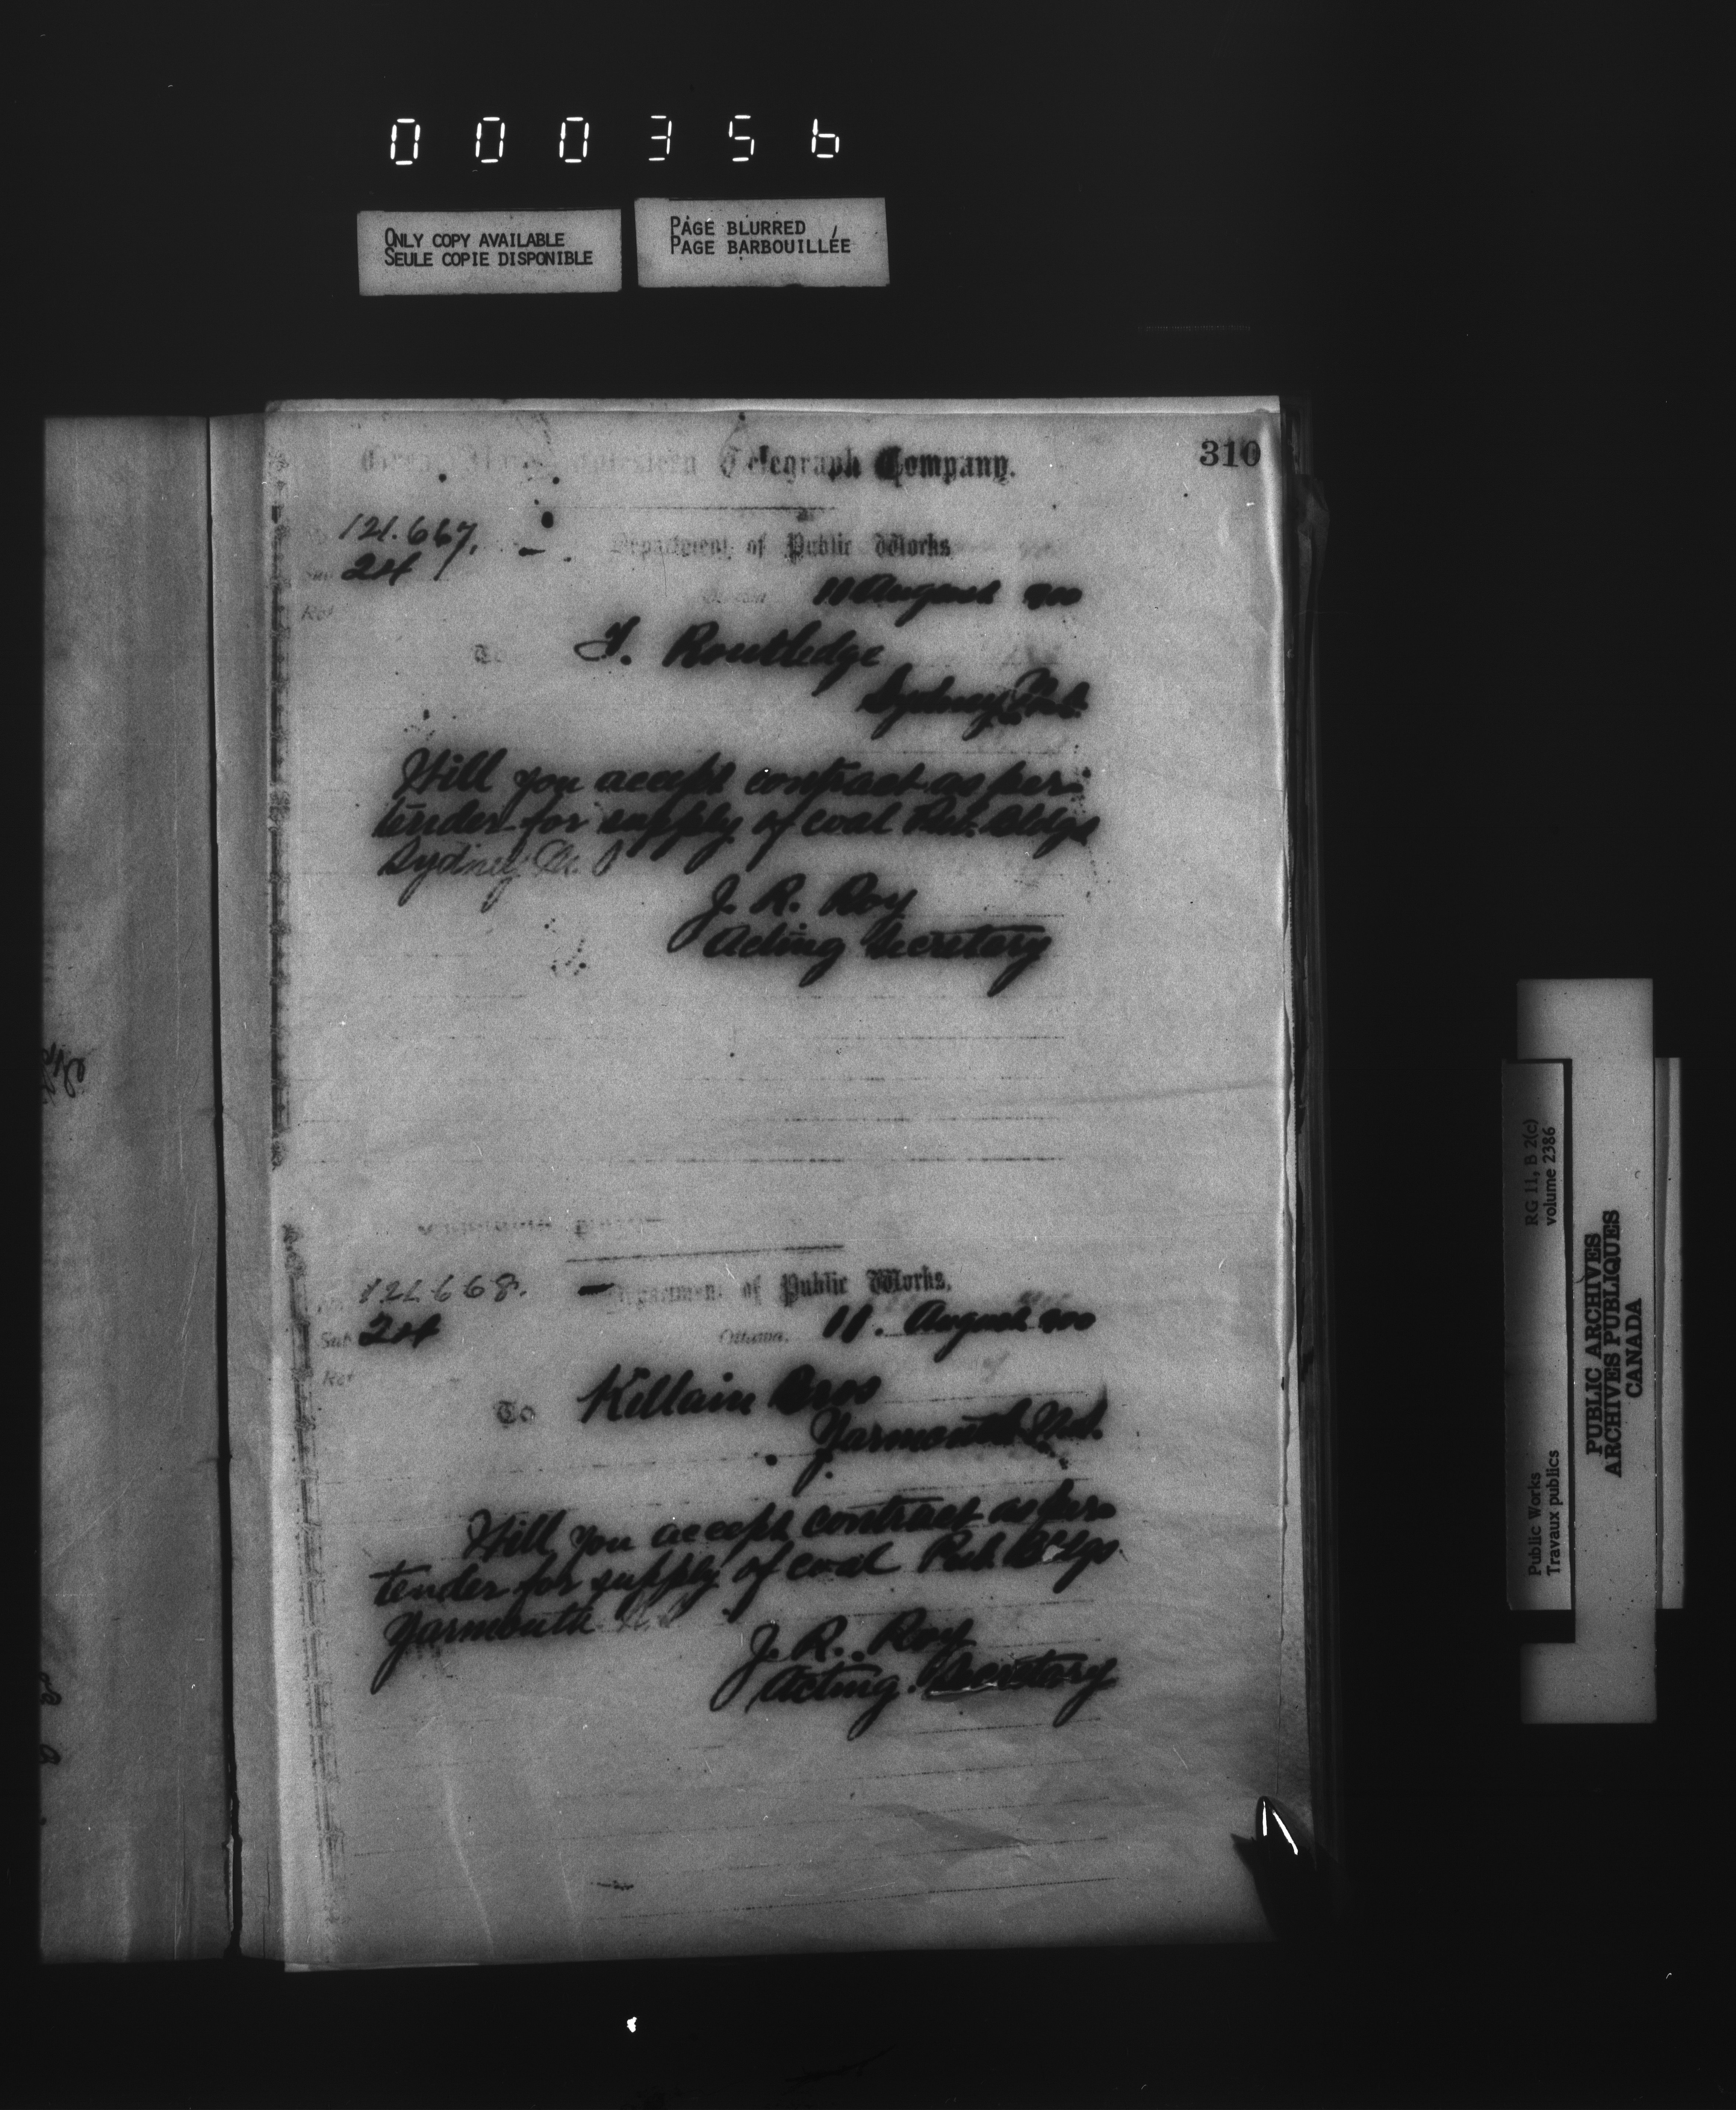 000356
ONLY COPY AVAILABLE
SEULE COPIE DISPONIBLE
PAGE BLURRED
PAGE BARBOUILLÉE
310
Telegraph Company.
121.667.
Department of Public Works
24
11 August 900
To J. Routledge
Sydney N.S.
Will you accept contract as per
tender for supply of coal Pub. Bldgs
Sydney
J. R. Roy
Acting Secretary
121.668.
Department of Public Works.
24
Ottawa, 11. August 900
To Killain Bros
Yarmouth N.S.
Will you accept contract as per
tender for supply of coal Pub. Bldgs
Yarmouth N.S.
J. R. Roy
Acting Secretary
RG 11, B 2(c)
volume 2386
Public Works
Travaux publics
PUBLIC ARCHIVES
ARCHIVES PUBLIQUES
CANADA